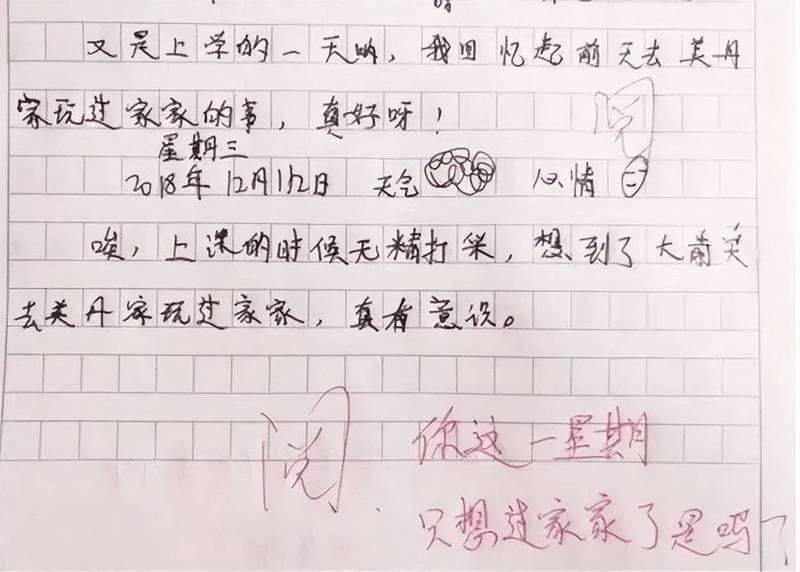 又是上学的一天呐，我回忆起前天去美丹
家玩过家家的事，真好呀！
阅
星期三
2018年12月12日 天气 心情
唉，上课的时候无精打采，想到了大前天
去美丹家玩过家家，真有意识。
阅
你这一星期
只想过家家了是吗？